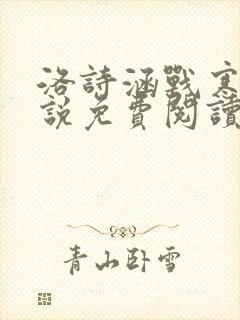 洛詩涵戰寒
說免費閱讀
青山臥雪